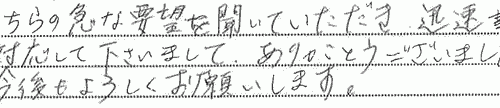 ちらの急な要望を聞いていただき、迅速
対応して下さいまして、ありがとうございまし
今後もよろしくお願いします。